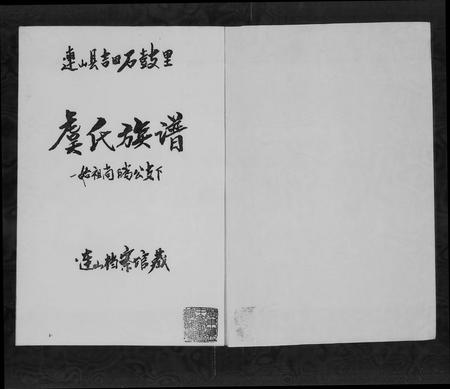 连山县吉田石鼓里
虞氏族谱
一始祖尚鹏公支下
连山档案馆藏